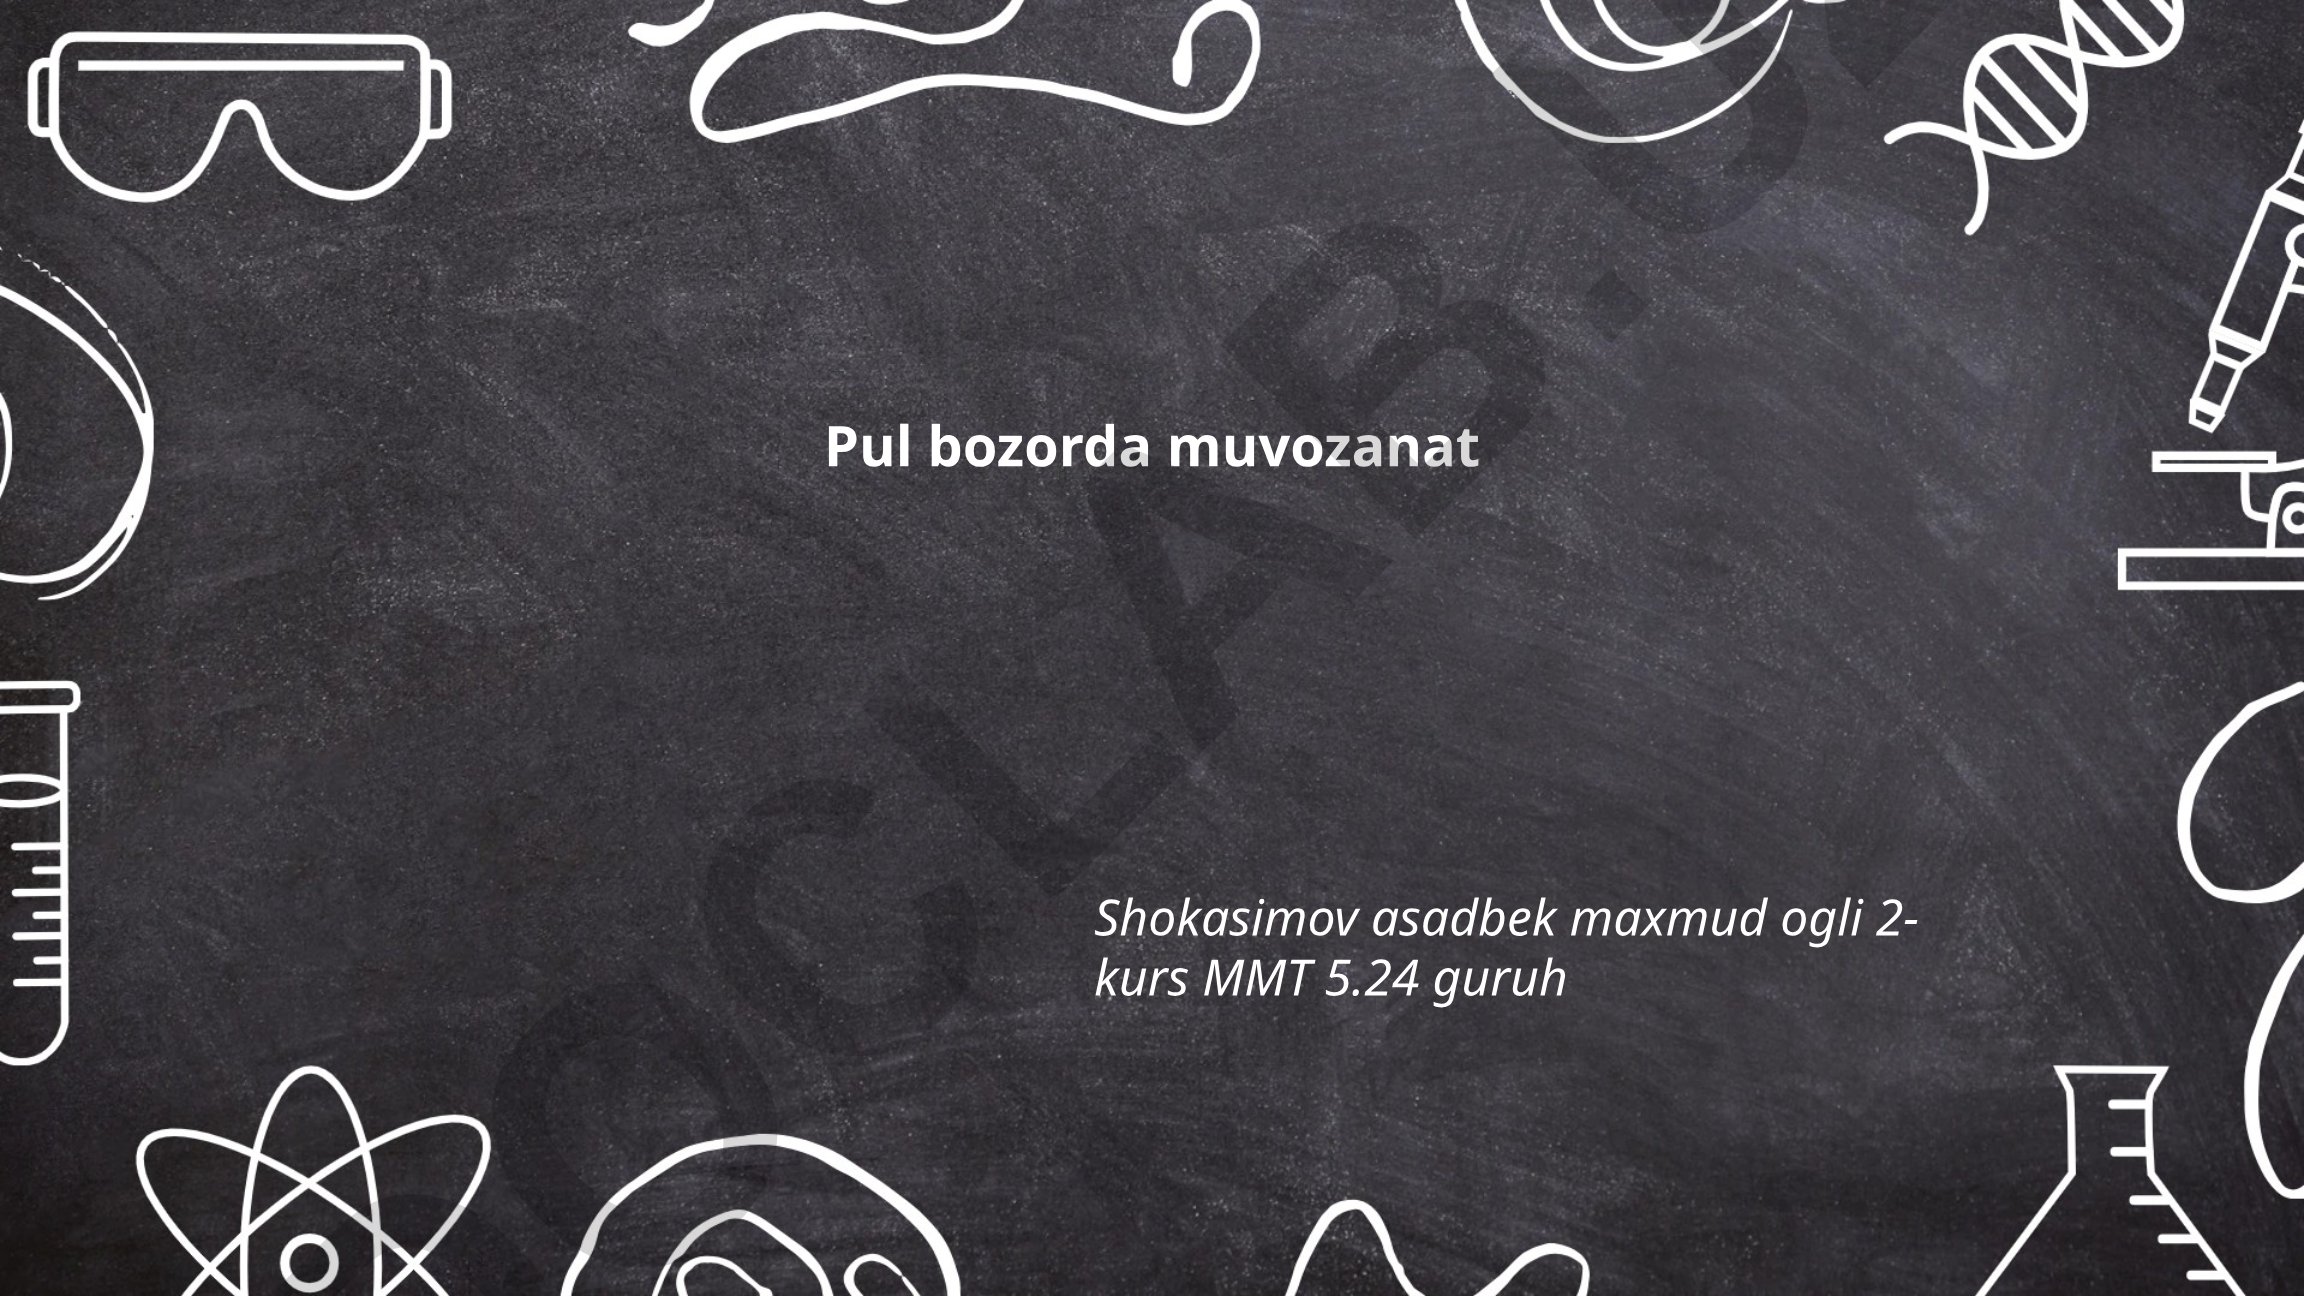 Pul bozorda muvozanat
Shokasimov asadbek maxmud ogli 2-
kurs MMT 5.24 guruh